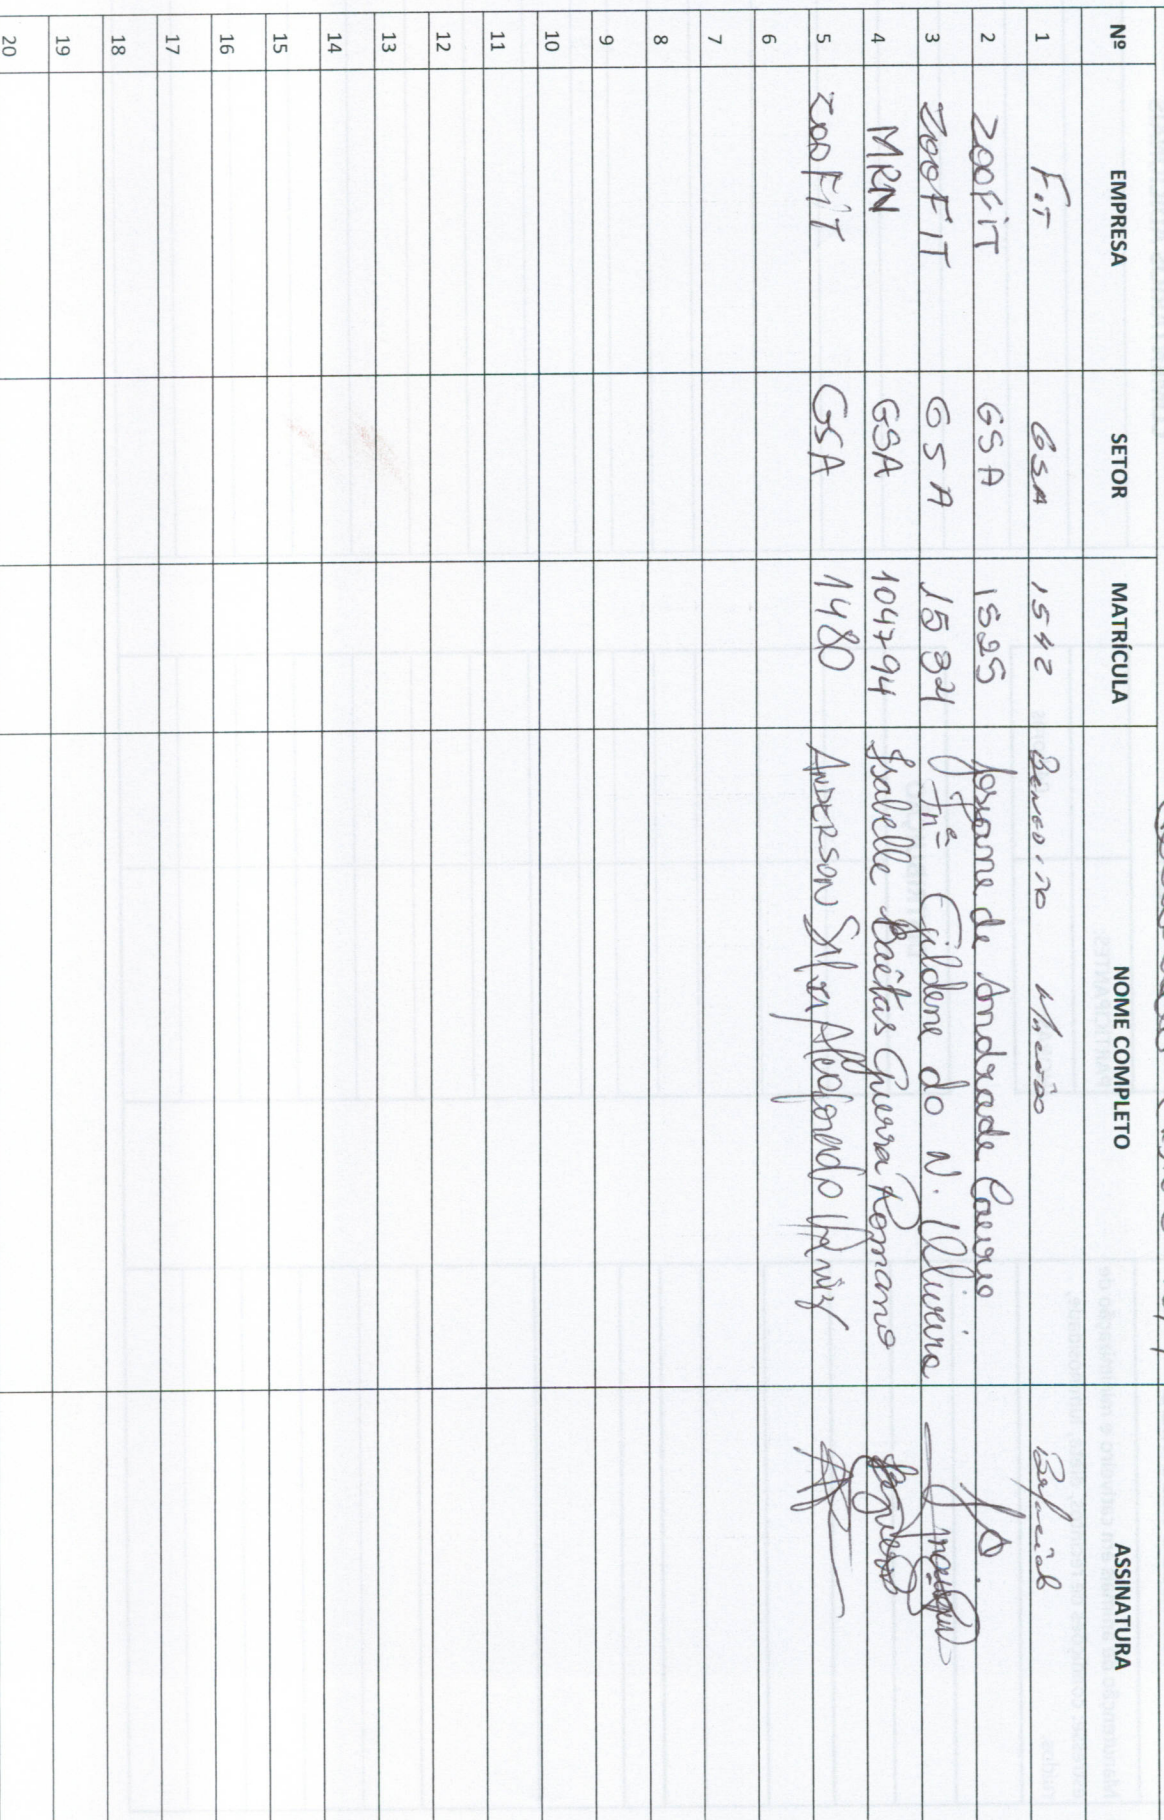 Nº EMPRESA SETOR MATRÍCULA NOME COMPLETO ASSINATURA
1 FIT GSA 1542 Benedito
2 ZOOFIT GSA 1525 Josiane de Andrade
3 ZOOFIT GSA Fnª Gildene do N. Oliveira
4 MRN GSA 104794 Isabelle Baêtas Guerra Romano
5 ZOOFIT GSA 1480 ANDERSON Silva
6
7
8
9
10
11
12
13
14
15
16
17
18
19
20